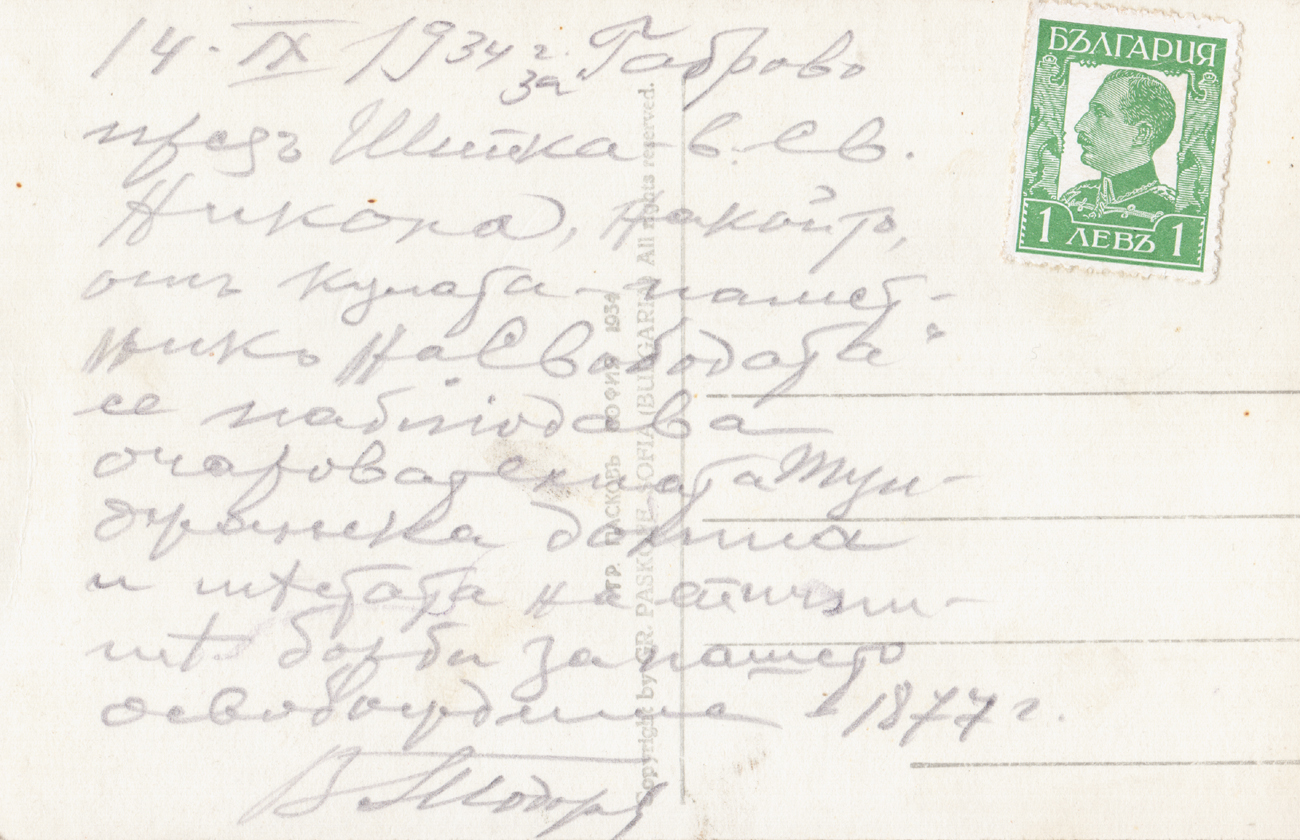 14. IX 1934 г. за Габрово
предъ Шипка - в. Св.
Никола, на който,
отъ кулата - памет-
никъ на Свободата"
се наблюдава
очарователната Тун-
джанска долина
и мѣстата на епични-
тѣ борби за нашето
освобождение - 1877 г.
В. Тодоръ
БЪЛГАРИЯ
1 ЛЕВЪ 1
ГР. ПАСКОВЪ СОФИЯ 1934
Copyright by GR. PASKOFF-SOFIA (BULGARIA) All rights reserved.